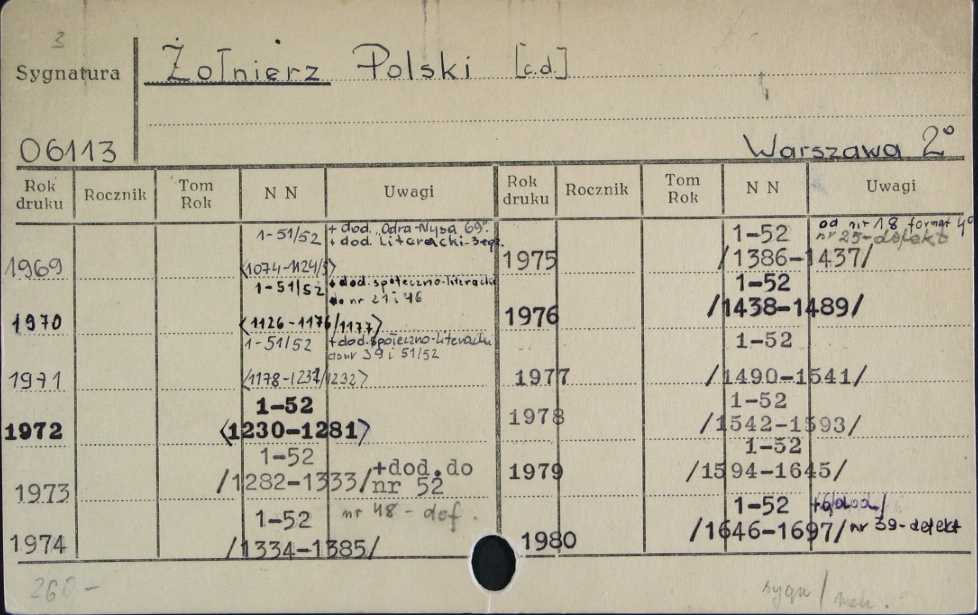 3
Sygnatura Żołnierz Polski [c.d.]
06113 Warszawa 2°
Rok druku Rocznik Tom Rok NN Uwagi Rok druku Rocznik Tom Rok NN Uwagi
1969 1-51/52 + dod. "Odra-Nysa 69".
+ dod. literacki-3egz.
<1074-1124/5>
1970 1-51/52 + dod. społeczno-literacki
do nr 21 i 46
<1126-1176/1177>
1971 1-51/52 + dod. społeczno-literacki
do nr 39 i 51/52
<1178-1231/1232>
1972 1-52
<1230-1281>
1973 1-52
/1282-1333/ +dod.do
nr 52
1974 1-52 nr 48 - def.
/1334-1385/
1975 1-52 od nr 18 format 4°
nr 25-defekt
/1386-1437/
1976 1-52
/1438-1489/
1977 1-52
/1490-1541/
1978 1-52
/1542-1593/
1979 1-52
/1594-1645/
1980 1-52
/1646-1697/ nr 39-defekt
260 -
sygn /